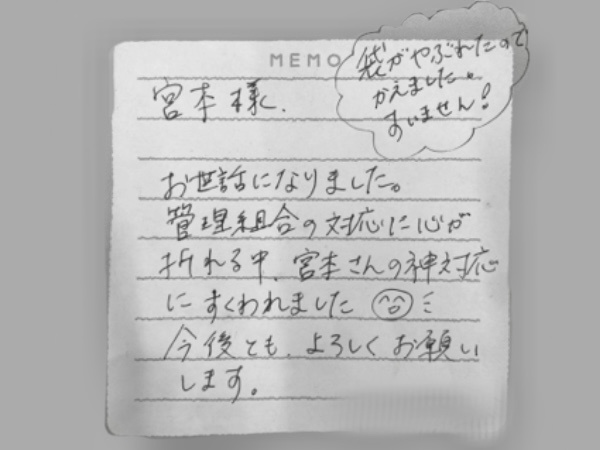 MEMO
袋がやぶれたので
かえました。
すいません!
宮本様.
お世話になりました。
管理組合の対応に心が
折れる中、宮本さんの神対応
にすくわれました
今後とも、よろしくお願い
します。